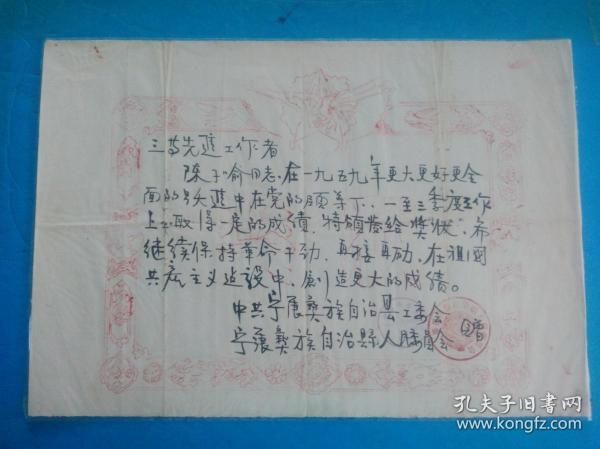 三等先進工作者
陈子俞同志.在一九五九年更大更好更全
面的跃進中在党的領导下.一至三季度工作
上.取得一定的成績.特頒發给獎狀.希
继续保持革命干劲.再接再励.在祖國
共產主义建設中.創造更大的成績。
中共宁蒗彝族自治县工委会
宁蒗彝族自治縣人民委員会
孔夫子旧书网
www.kongfz.com